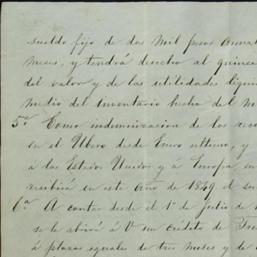 sueldo fijo de dos mil pesos anual
meses, y tendrá derecho al quince
del valor y de las utilidades líqui
medio del inventario hecho del m
5ª Como indemnizacion de los
en el desde Enero ultimo, y
á los Estados Unidos y á Europa
recibirá en este año de 1849 el su
6ª A contar desde el 1º de julio de
se le abrirá á V un crédito de Tre
á plazos iguales de tres meses y de